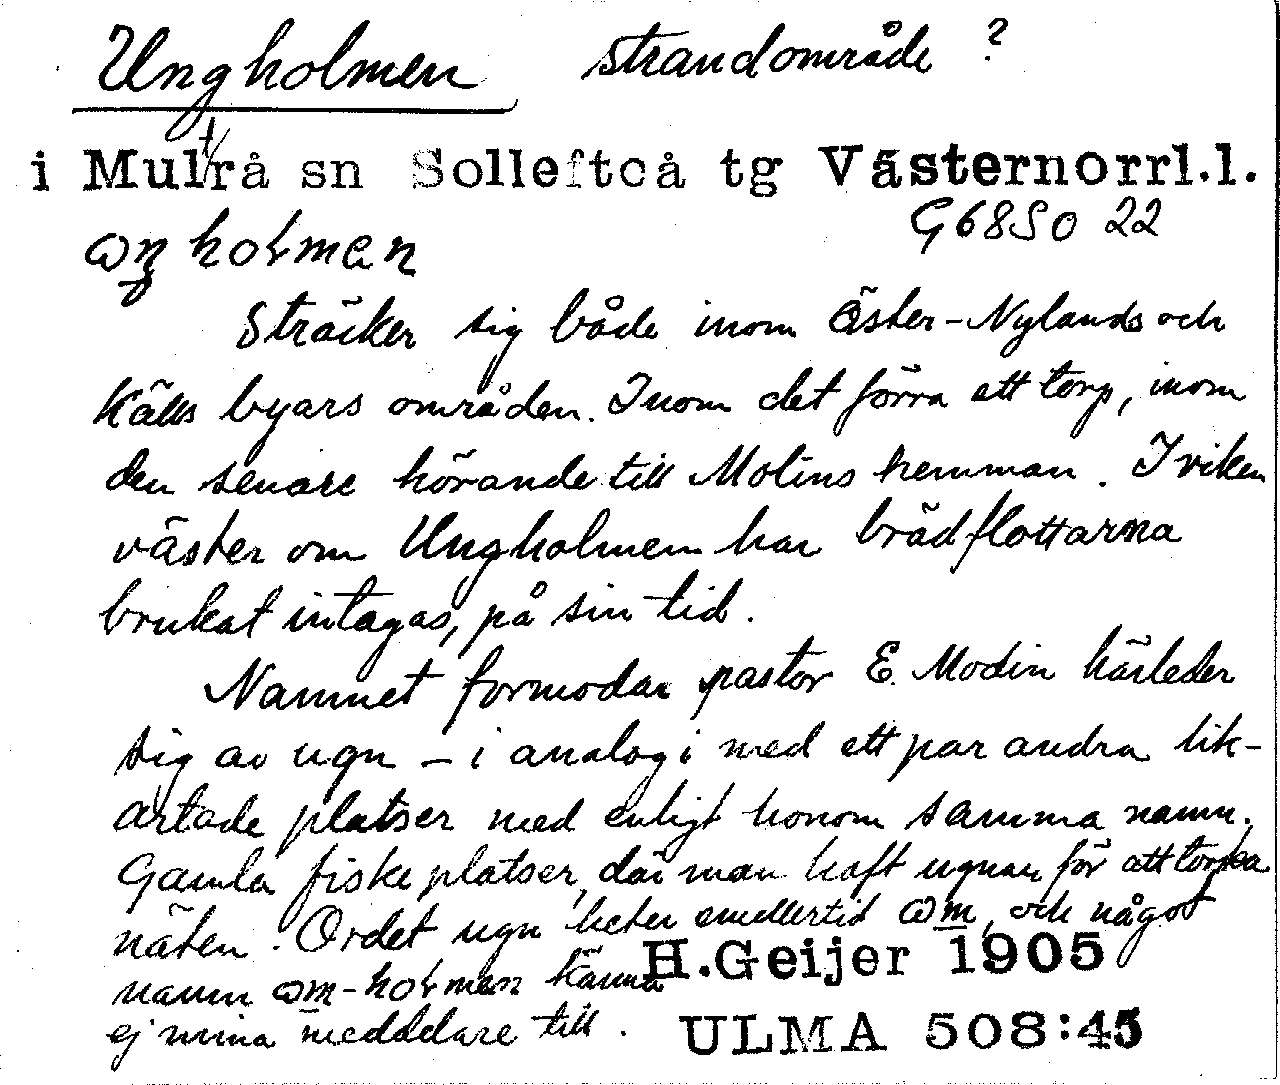 Ungholmen strandområde ?
i Multrå sn Sollefteå tg Västernorrl.l.
G68SO 22
holmen
Sträcker sig både inom Öster-Nylands och
Källs byars områden. Inom det förra ett torp, inom
den senare hörande till Molins hemman. I viken
väster om Ungholmen har brädflottarna
brukat intagas, på sin tid.
Namnet förmodar pastor E. Modin härleder
sig av ugn – i analogi med ett par andra lik-
artade platser med enligt honom samma namn.
Gamla fiskeplatser, där man haft ugnar för att torka
näten. Ordet ugn heter emellertid och något
namn -holmen känna
ej mina meddelare till.
H.Geijer 1905
ULMA 508:45